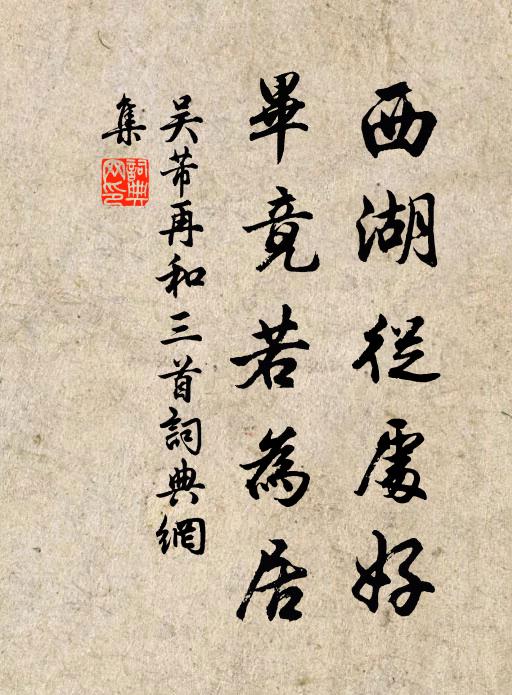 西湖從處好
畢竟若為居
吴芾再和三首詞典網
集
詞典
网印